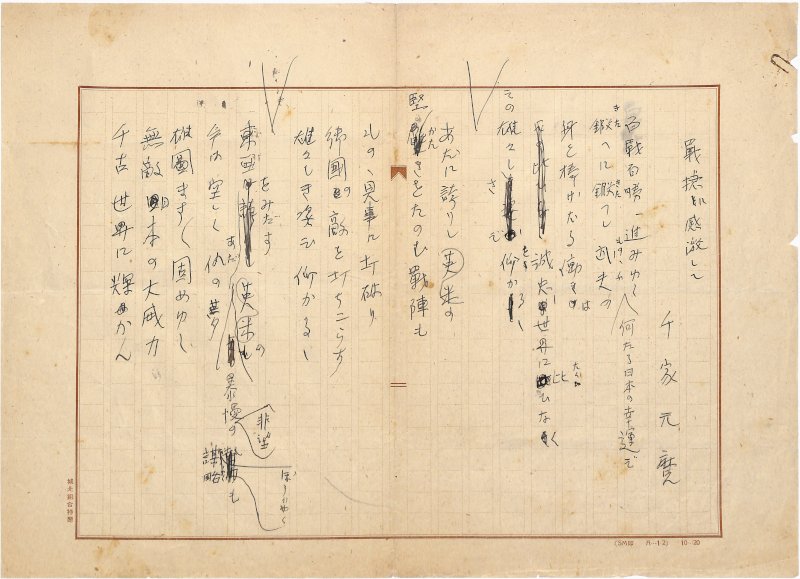 戦捷に感激して
千家元麿
百戦百勝 進みゆく 何たる日本の幸運ぞ
鍛へに鍛へし 丈夫の
身を捧げたる働きは
誠忠世界に比ひなく
その雄々しさぞ仰がるゝ
あだに誇りし英米の
堅きをたのむ戦陣も
ものゝ見事に打破り
御国の敵を打ちこらす
雄々しき姿ぞ仰がるゝ
東亜をみだす英米の
今は空しく仇の夢
非望
暴慢の
謀略も
雄図ますゝゝ固めゆく
無敵日本の大威力
千古 世界に輝かん
城北組合特製
(SM印 A-12) 10-20